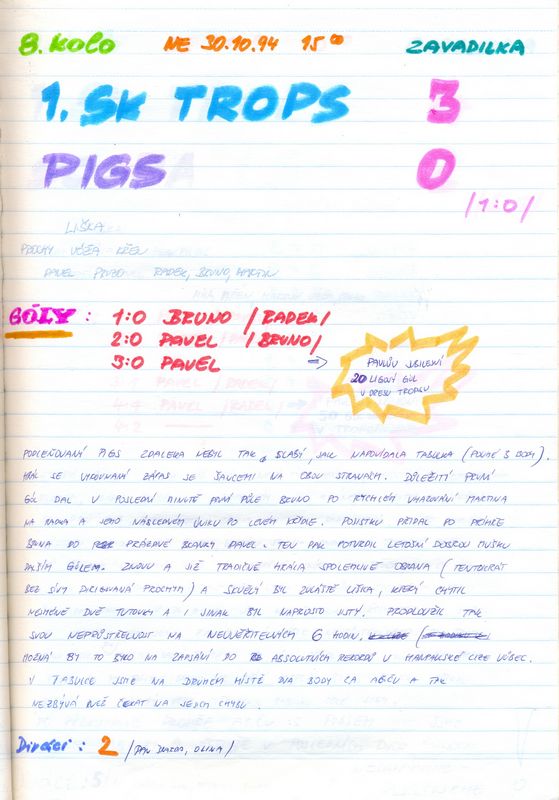 8. KOLO NE 30.10.94 15°° ZAVADILKA
1. SK TROPS 3
PIGS 0
/1:0/
LIŠKA
PROCHY VÓŽA KŘEN
PAVEL RADEK, BRUNO, MARTIN
GÓLY : 1:0 BRUNO /RADEK/
2:0 PAVEL /BRUNO/
3:0 PAVEL =>
PAVLŮV JUBILEJNÍ
20 LIGOVÝ GÓL
V DRESU TROPSU
PODCEŇOVANÍ PIGS ZDALEKA NEBYLI TAK SLABÍ, JAK NAPOVÍDALA TABULKA (POUHÉ 3 BODY).
HRÁL SE VYROVNANÝ ZÁPAS SE ŠANCEMI NA OBOU STRANÁCH. DŮLEŽITÝ PRVNÍ
GÓL DAL V POSLEDNÍ MINUTĚ PRVNÍ PŮLE BRUNO PO RYCHLÉM VHAZOVÁNÍ MARTINA
NA RADKA A JEHO NÁSLEDNÉM ÚNIKU PO LEVÉM KŘÍDLE. POJISTKU PŘIDAL PO PŘIHRE
BRUNA DO PRÁZDNÉ BRANKY PAVEL. TEN PAK POTVRDIL LETOŠNÍ DOBROU MUŠKU
DALŠÍM GÓLEM. ZNOVU A JIŽ TRADIČNĚ HRÁLA SPOLEHLIVĚ OBRANA (TENTOKRÁT
BEZ SÍVY DIRIGOVANÁ PROCHYM) A SKVĚLÝ BYL ZVLÁŠTĚ LIŠKA, KTERÝ CHYTIL
NEJMÉNĚ DVĚ TUTOVKY A I JINAK BYL NAPROSTO JISTÝ. PRODLOUŽIL TAK
SVOU NEPRŮSTŘELNOST NA NEUVĚŘITELNÝCH 6 HODIN.
MOŽNÁ BY TO BYLO NA ZAPSÁNÍ DO ABSOLUTNÍCH REKORDŮ V HANPAULSKÉ LIZE VŮBEC.
V TABULCE JSME NA DRUHÉM MÍSTĚ DVA BODY ZA ABČU A TAK
NEZBÝVÁ NEŽ ČEKAT NA JEJICH CHYBU.
Diváci : 2 /PAN OLINA/